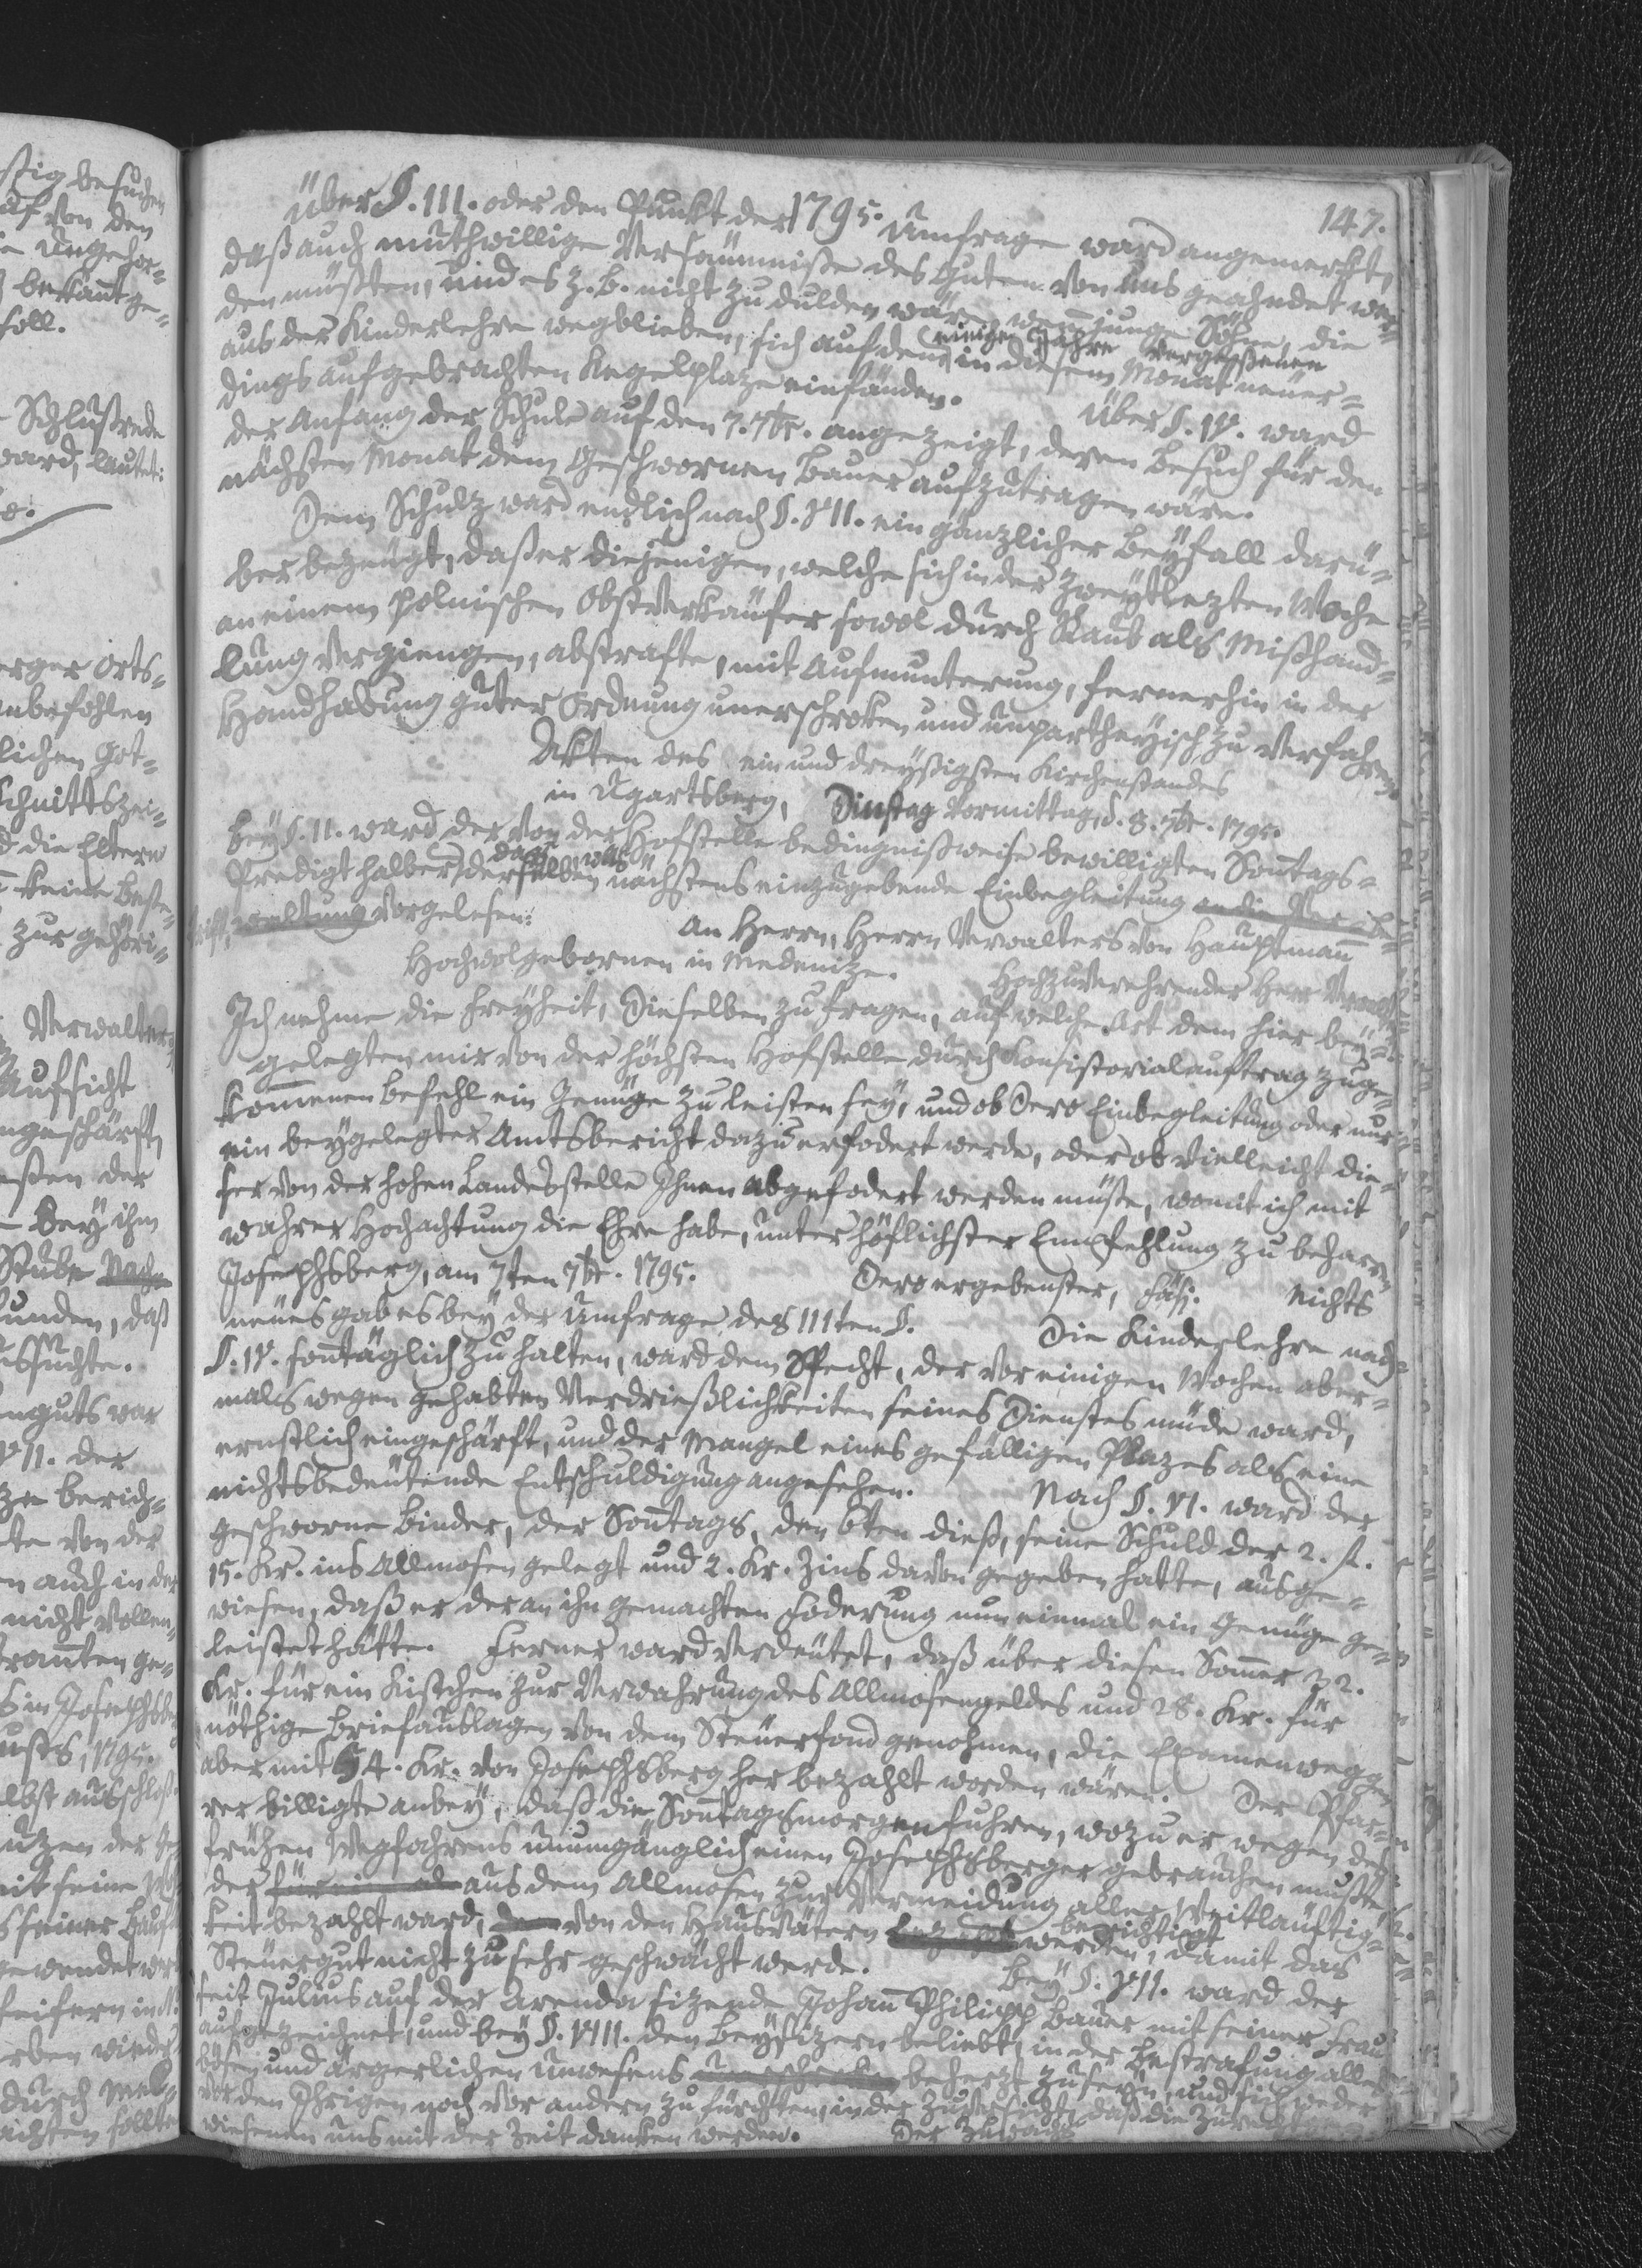 147.
1795.
Über §. III. oder den Punkt der Umfrage ward angemerkt,
daß auch muthwillige Versäumniße des Guten von uns geahndet wer-
den müßten, und es z. B. nicht zu dulden wäre, wenn junge Söhne, die
aus der Kinderlehre wegblieben, sich auf dem einige Jahre vergeßenen in diesem Monat neuer-
dings aufgebrachten Kegelplaze einfänden. Über §. IV. ward
der Anfang der Schule auf den 7. 7br. angezeigt, deren Besuch für den
nächsten Monat dem Geschwornen Bauer aufzutragen wäre.
Dem Schulz ward endlich nach §. VII. ein gänzlicher Beyfall darü-
ber bezeugt, daß er diejenigen, welche sich in der zweytlezten Woche
an einem polnischen Obstverkäufer sowol durch Raub als Mißhand-
lung vergiengen, abstrafte, mit Aufmunterung, fernerhin in der
Handhabung guter Ordnung unerschroken und unpartheyisch zu verfahren.
Akten des ein und dreyßigsten Kirchenstandes
in Ugartsberg, Dinstag Vormittag, d. 8. 7br. 1795.
Bey §. II. ward der von der Hofstelle bedingnißweise bewilligten Sontags-
Predigt halber derselben nächstens einzugebende Einbegleitung an die Ver- be-
waltung vorgelesen:
An Herrn, Herrn Verwalters von Hauptmann
Hochwolgebornen in Medenize. Hochzuverehrender Herr Verwalter
Ich nehme die Freyheit, Dieselben zu fragen, auf welche Art dem hier bey-
gelegten mir von der höchsten Hofstelle durch Konsistorialauftrag zuge-
kommenen Befehl ein Genüge zu leisten sey, und ob Dero Einbegleitung oder nur
ein beygelegter Amtsbericht dazu erfodert werde, oder ob vielleicht die-
ser von der hohen Landesstelle Ihnen abgefodert werden müßte, womit ich mit
wahrer Hochachtung die Ehre habe, unter höflichster Empfehlung zu beharren
Josephsberg, am 7ten 7br. 1795. Dero ergebenster, Fäsi. Nichts
neues gab es bey der Umfrage des IIIten §. Die Kinderlehre nach
§. IV. sontäglich zu halten, ward dem Specht, der vor einigen Wochen aber-
mals wegen gehabten Verdrießlichkeiten seines Dienstes müde ward,
ernstlich eingeschärft, und der Mangel eines gefälligen Plazes als eine
nichtsbedeutende Entschuldigung angesehen. Nach §. VI. ward der
geschworne Binder, der Sontags, den 6ten dieß, seine Schuld der 2. fl.
15. Kr. ins Allmosen gelegt und 2. Kr. Zins davon gegeben hatte, ausge-
wiesen, daß er der an ihn gemachten Foderung nun einmal ein Genüge ge-
leistet hätte. Ferner ward verdeutet, daß über diesen Sommer 32.
Kr. für ein Kistchen zur Verwahrung des Allmosengeldes und 28. Kr. für
nöthige Briefauslagen von dem Steuerfond genohmen, die Examenweggen
aber mit 54. Kr. von Josephsberg her bezahlt worden wären. Der Pfar-
rer billigte anbey, daß die Sontagsmorgenfuhren, wozu er wegen des
frühen Wegfahrens unumgänglich einen Josephsberger gebrauchen mußte,
der aus dem Allmosen zur Vermeidung aller Weitläuftig-
keit bezahlt ward, von den Hausvätern berichtigt werden, damit das
Steuergut nicht zu sehr geschwächt werde. Bey §. VII. ward der
seit Julius auf der Arenda sizende Johann Philipp Bauer mit seiner Frau
aufgezeichnet, und bey §. VIII. den Beysizern beliebt, in der Bestrafung alles
bösen und ärgerlichen Unwesens beherzt zu seyn, und sich weder
vor den Ihrigen noch vor andern zu fürchten, in der Zuversicht, daß die
wiesenen uns mit der Zeit danken werden. Der